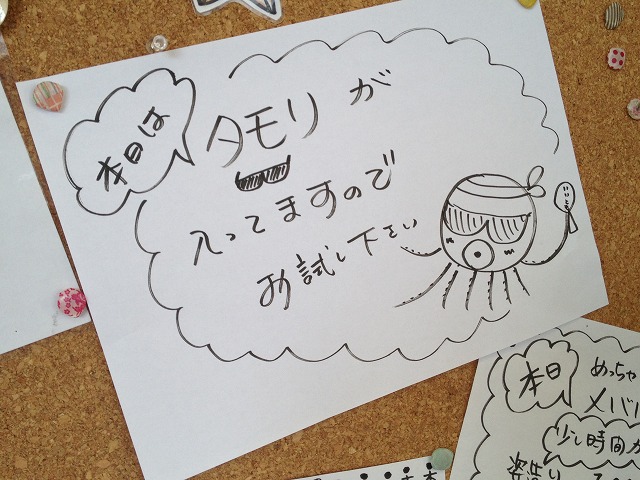 本日は
タモリが
入ってますので
お試し下さい
本日
めっちゃ
メバル
少し時間か